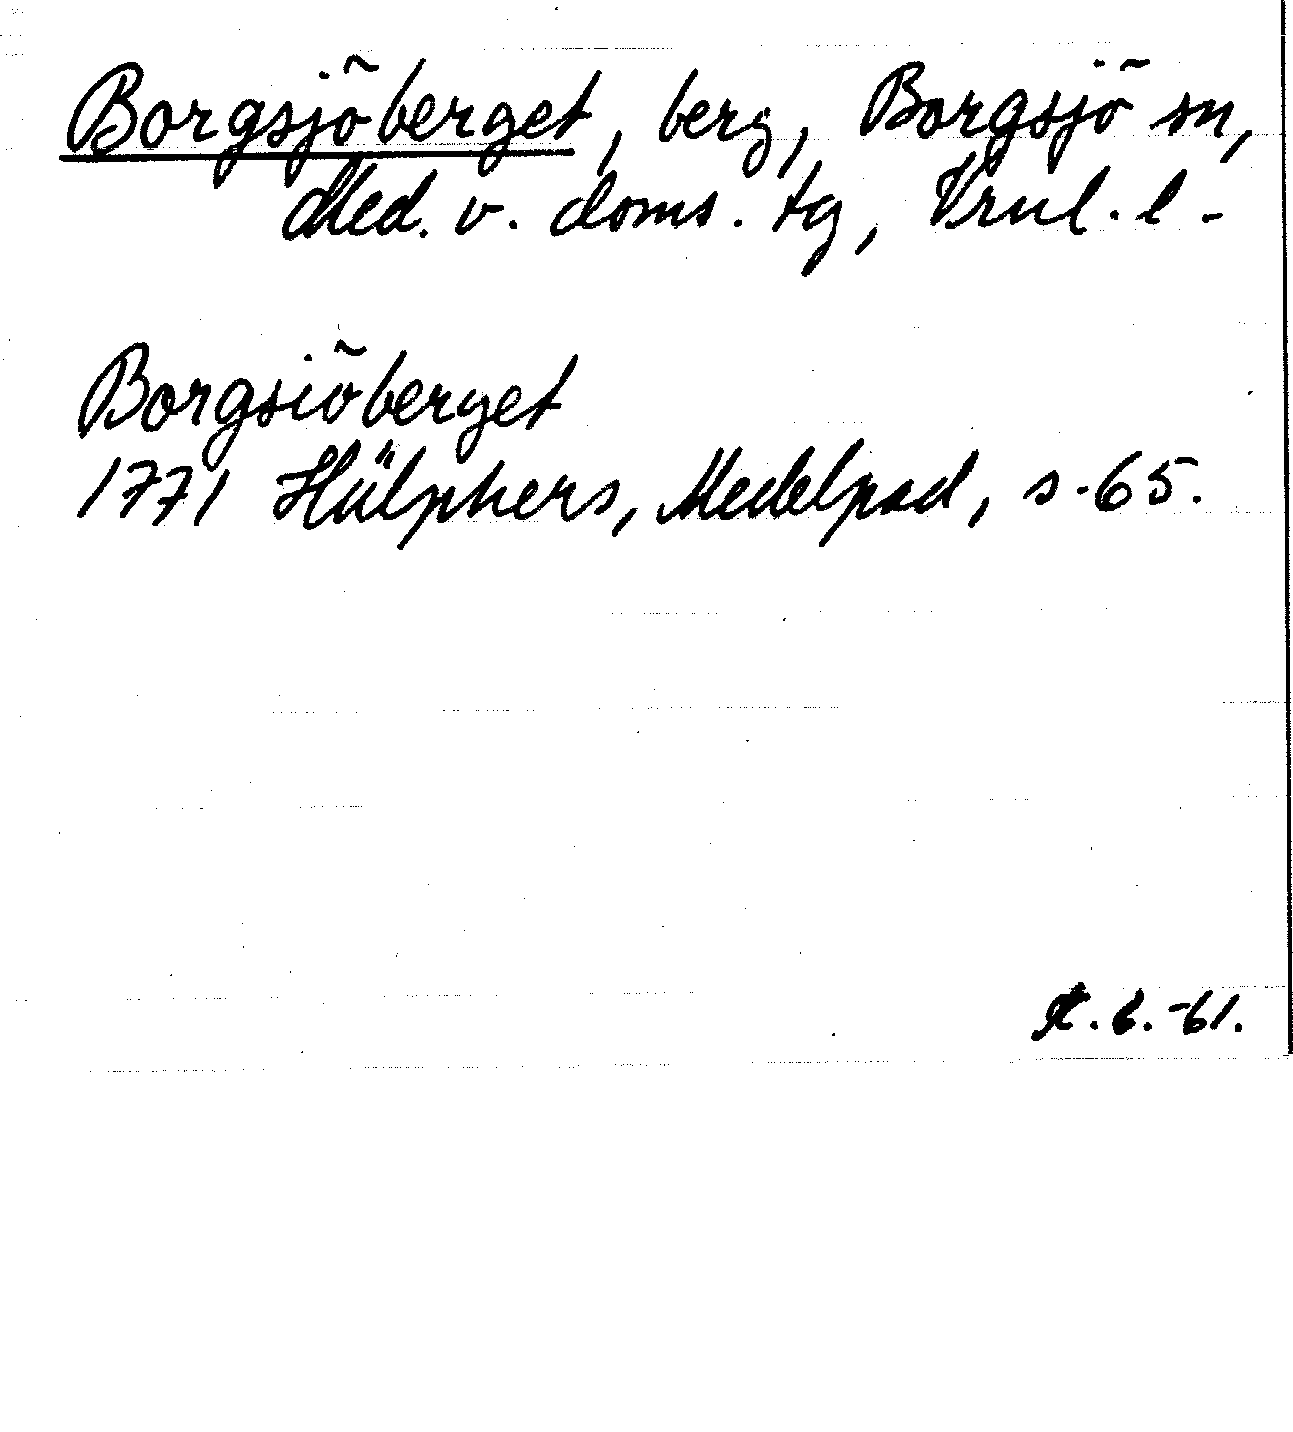 Borgsjöberget, berg, Borgsjö sn,
Med. v. doms. tg, Vrnl. l.
Borgsiöberget
1771 Hülphers, Medelpad, s. 65.
6. -61.